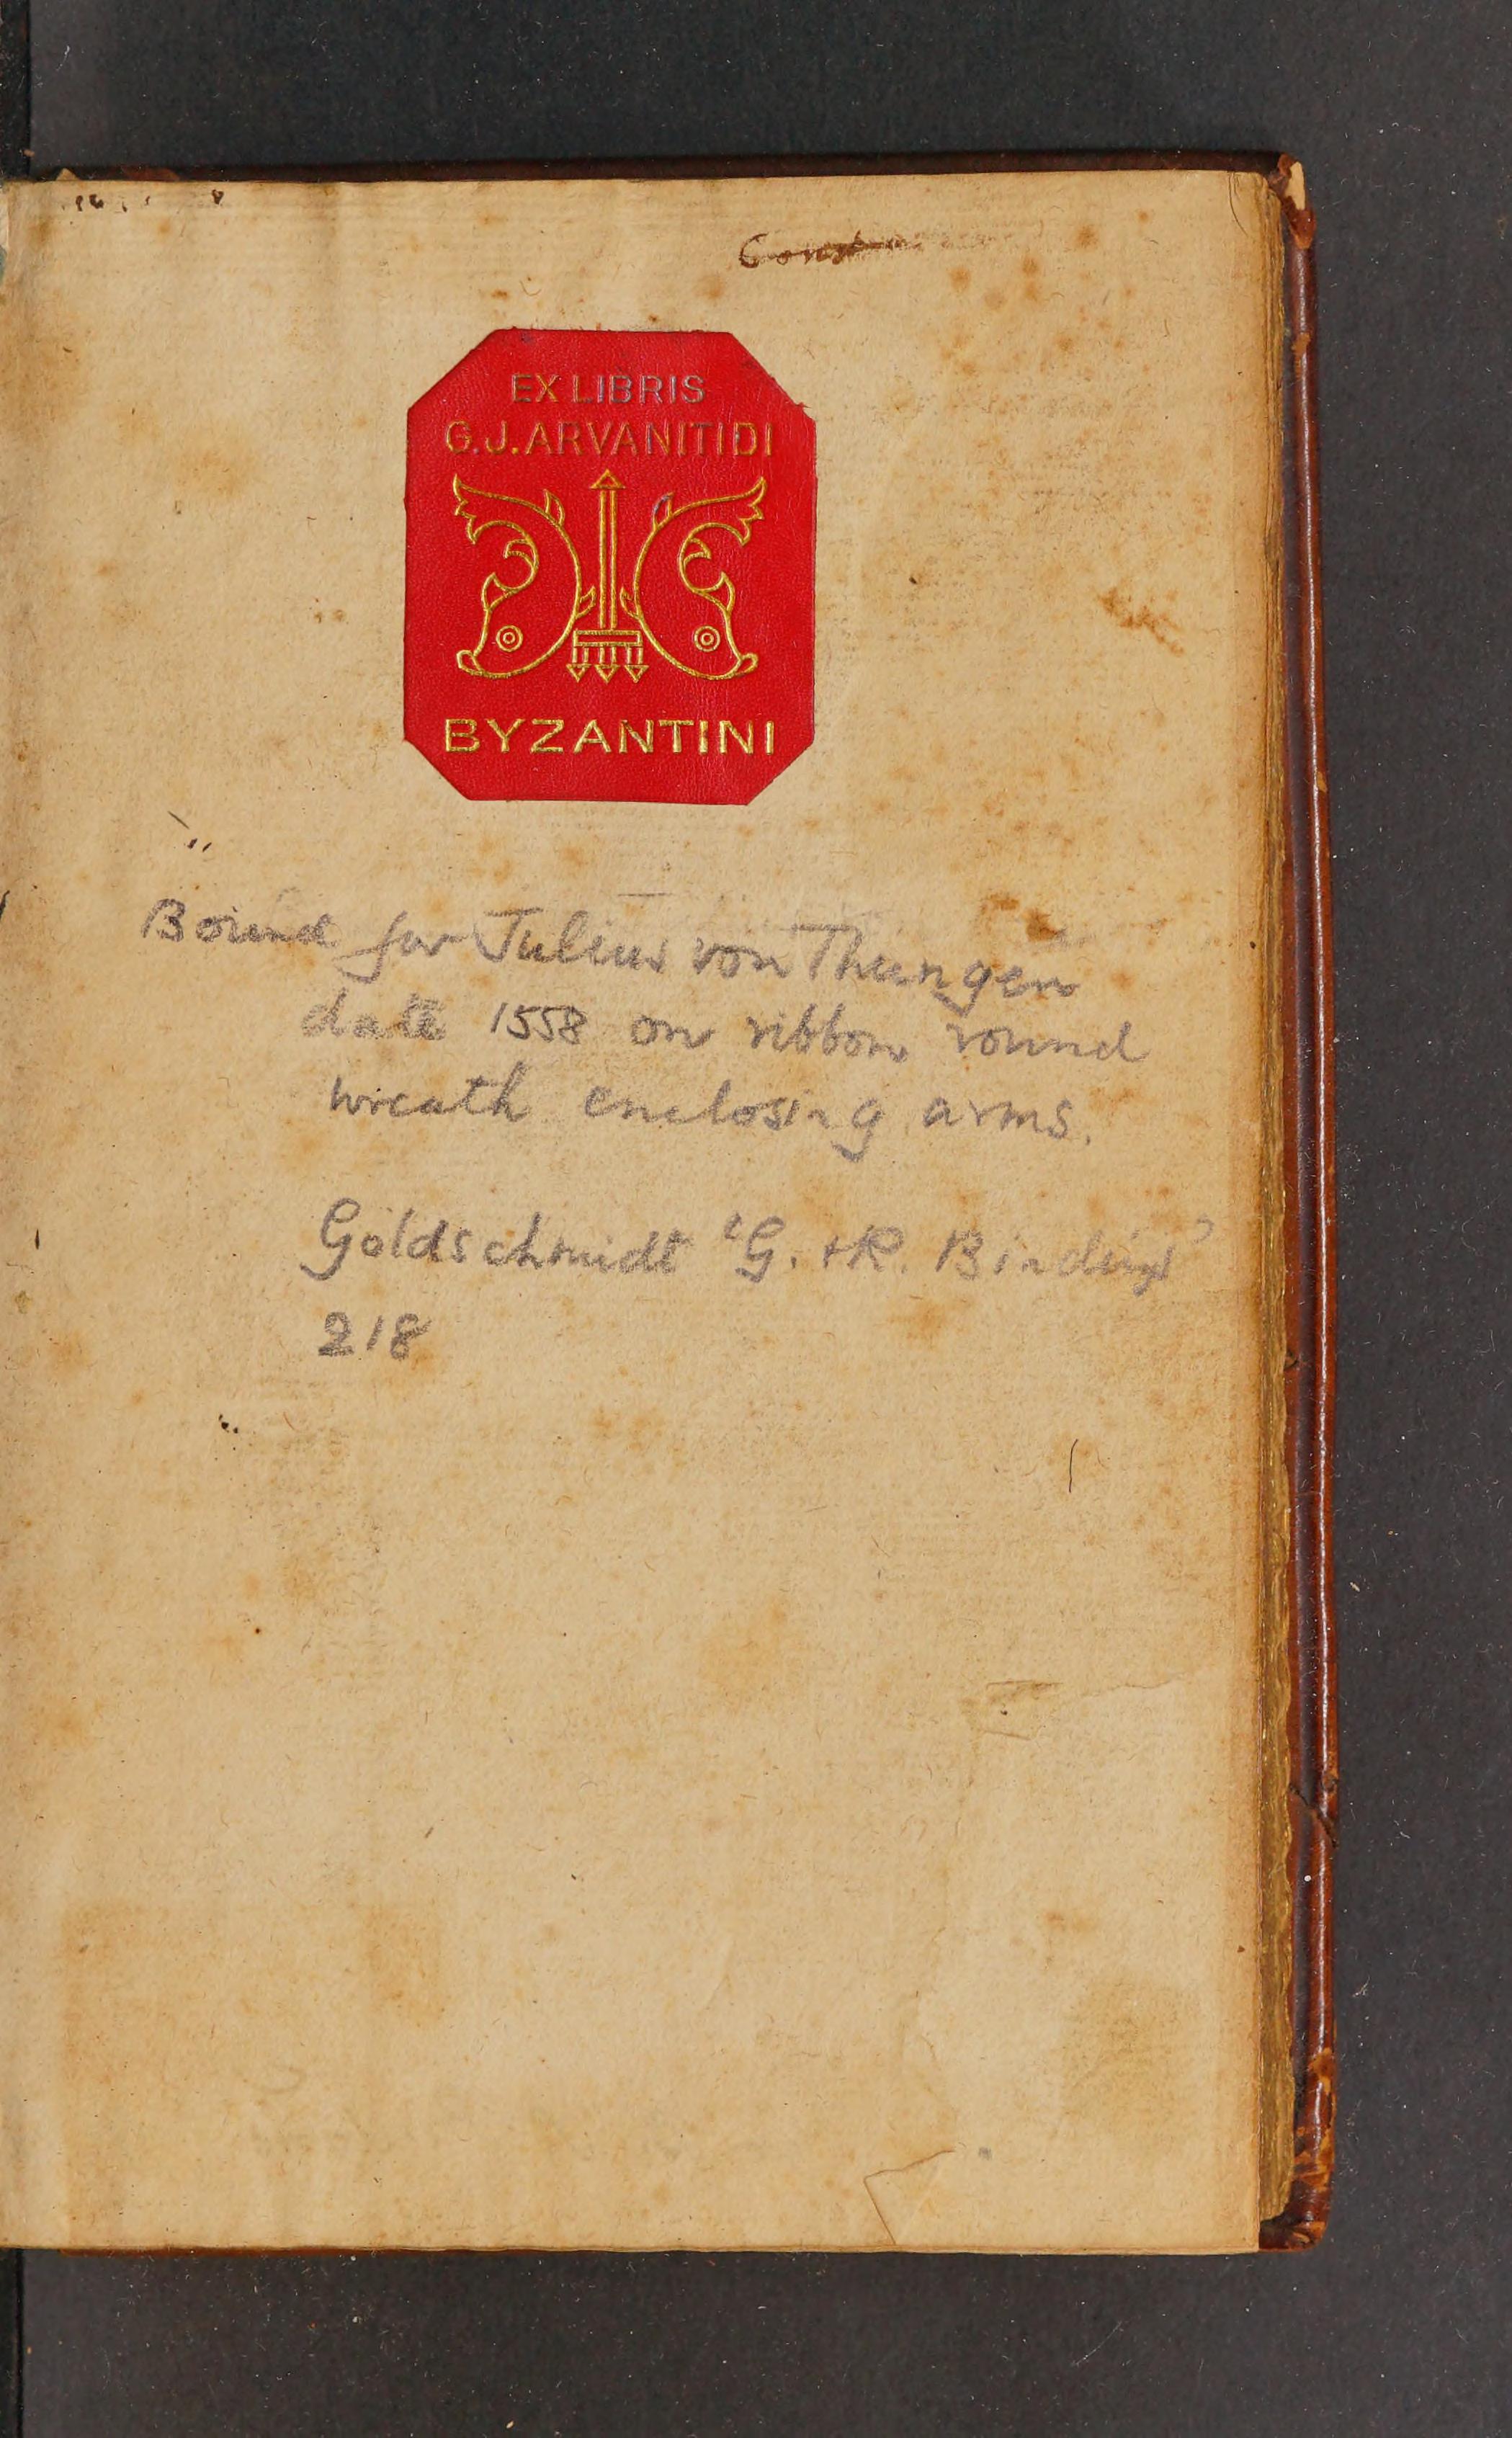 EX LIBRIS
G.J. ARVANITIDI
BYZANTINI
Bound for Julius von Thungen
date 1558 on ribbon round
wreath enclosing arms.
Goldschmidt 'G. + R. Bindings'
218